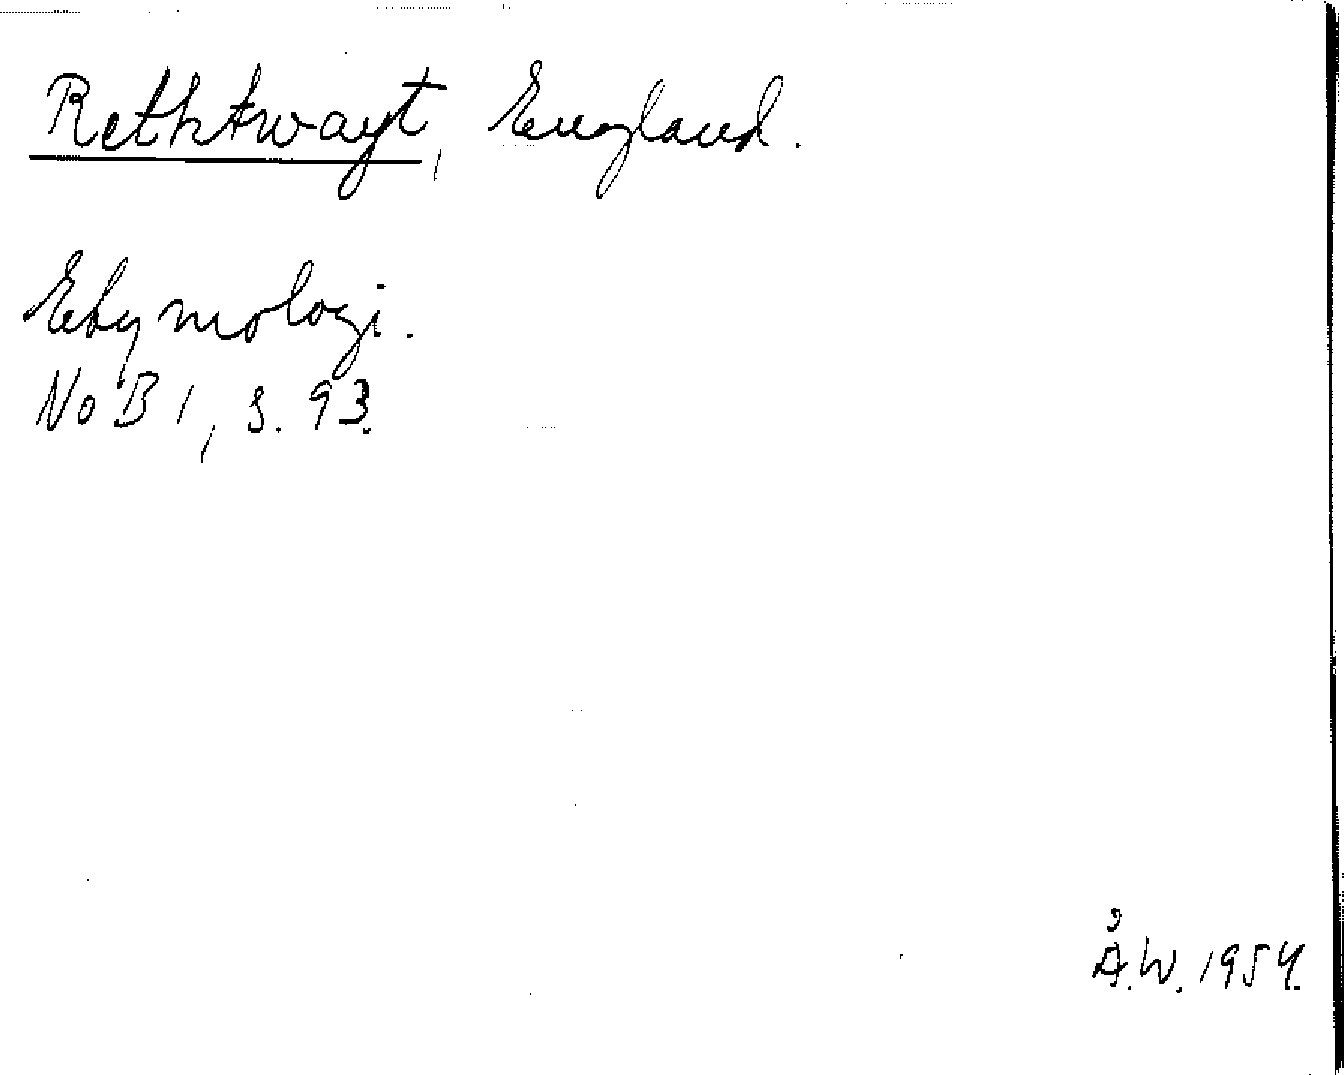 Rethtwayt, England.
Etymologi.
NoB 1, s. 93.
Å.W. 1954.